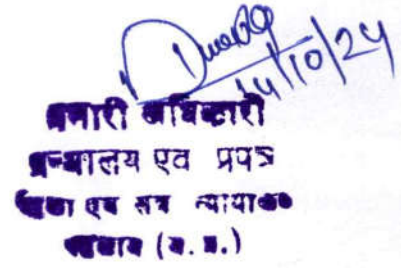 14/10/24
प्रभारी अधिकारी
ग्रन्थालय एवं प्रपत्र
एवं सत्र न्यायालय
(म. प्र.)